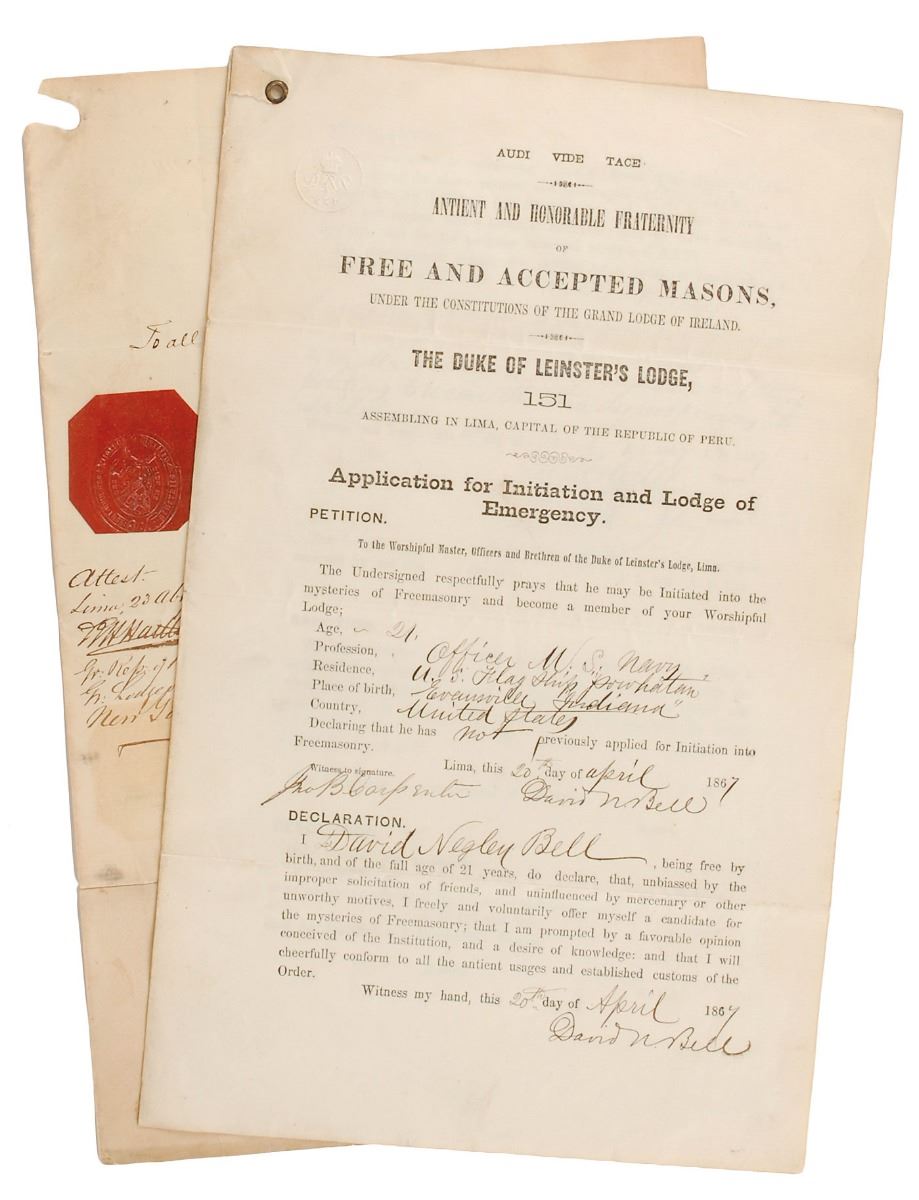 AUDI VIDE TACE
ANTIENT AND HONORABLE FRATERNITY
OF
FREE AND ACCEPTED MASONS,
UNDER THE CONSTITUTIONS OF THE GRAND LODGE OF IRELAND.
THE DUKE OF LEINSTER'S LODGE,
151
ASSEMBLING IN LIMA, CAPITAL OF THE REPUBLIC OF PERU.
Application for Initiation and Lodge of
Emergency.
PETITION.
To the Worshipful Master, Officers and Brethren of the Duke of Leinster's Lodge, Lima.
The Undersigned respectfully prays that he may be Initiated into the
mysteries of Freemasonry and become a member of your Worshipful
Lodge;
Age, 21.
Profession, Officer U. S. Navy
Residence, U. S. Flag Ship "Powhatan"
Place of birth, Evansville Indiana"
Country, United States
Declaring that he has not previously applied for Initiation into
Freemasonry.
Lima, this 20th day of April 1867
Witness to signature.
Jno B. Carpenter David N Bell
DECLARATION.
I David Negley Bell, being free by
birth, and of the full age of 21 years, do declare, that, unbiassed by the
improper solicitation of friends, and uninfluenced by mercenary or other
unworthy motives, I freely and voluntarily offer myself a candidate for
the mysteries of Freemasonry; that I am prompted by a favorable opinion
conceived of the Institution, and a desire of knowledge: and that I will
cheerfully conform to all the antient usages and established customs of the
Order.
Witness my hand, this 20th day of April 1867
David N. Bell
To all
Attest.
Lima, 23
Gr. Rep. of
Gr. Lodge
New